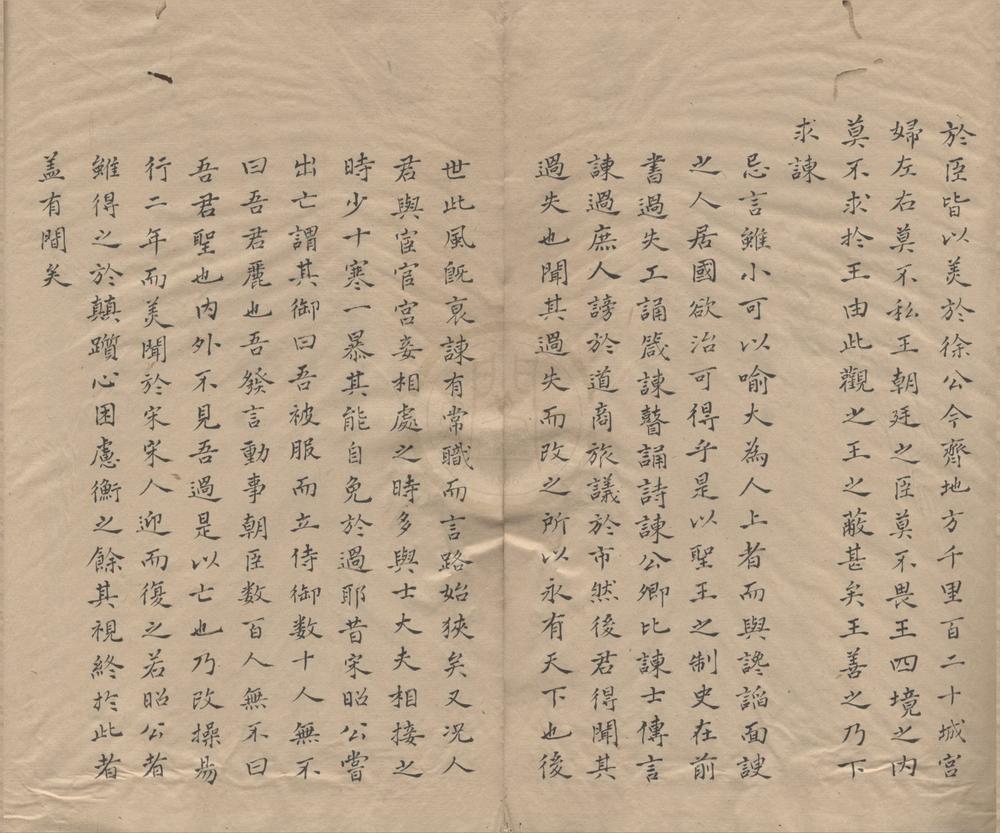 於臣皆以美於徐公今齊地方千里百二十城宮
婦左右莫不私王朝廷之臣莫不畏王四境之内
莫不求扵王由此觀之王之蔽甚矣王善之乃下
求諫
忌言雖小可以喻大為人上者而與讒謟面諛
之人居國欲治可得乎是以聖王之制史在前
書過失工誦箴諫瞽誦詩諫公卿比諫士傳言
諫過庶人謗於道商旅議於市然後君得聞其
過失也聞其過失而改之所以永有天下也後
世此風旣衰諫有常職而言路始狹矣又况人
君與宦官宮妾相處之時多與士大夫相接之
時少十寒一暴其能自免於過耶昔宋昭公嘗
出亡謂其御曰吾被服而立侍御数十人無不
曰吾君麗也吾發言動事朝臣数百人無不曰
吾君聖也内外不見吾過是以亡也乃改操易
行二年而美聞於宋宋人迎而復之若昭公者
雖得之於顛躓心困慮衡之餘其視終扵此者
盖有間矣